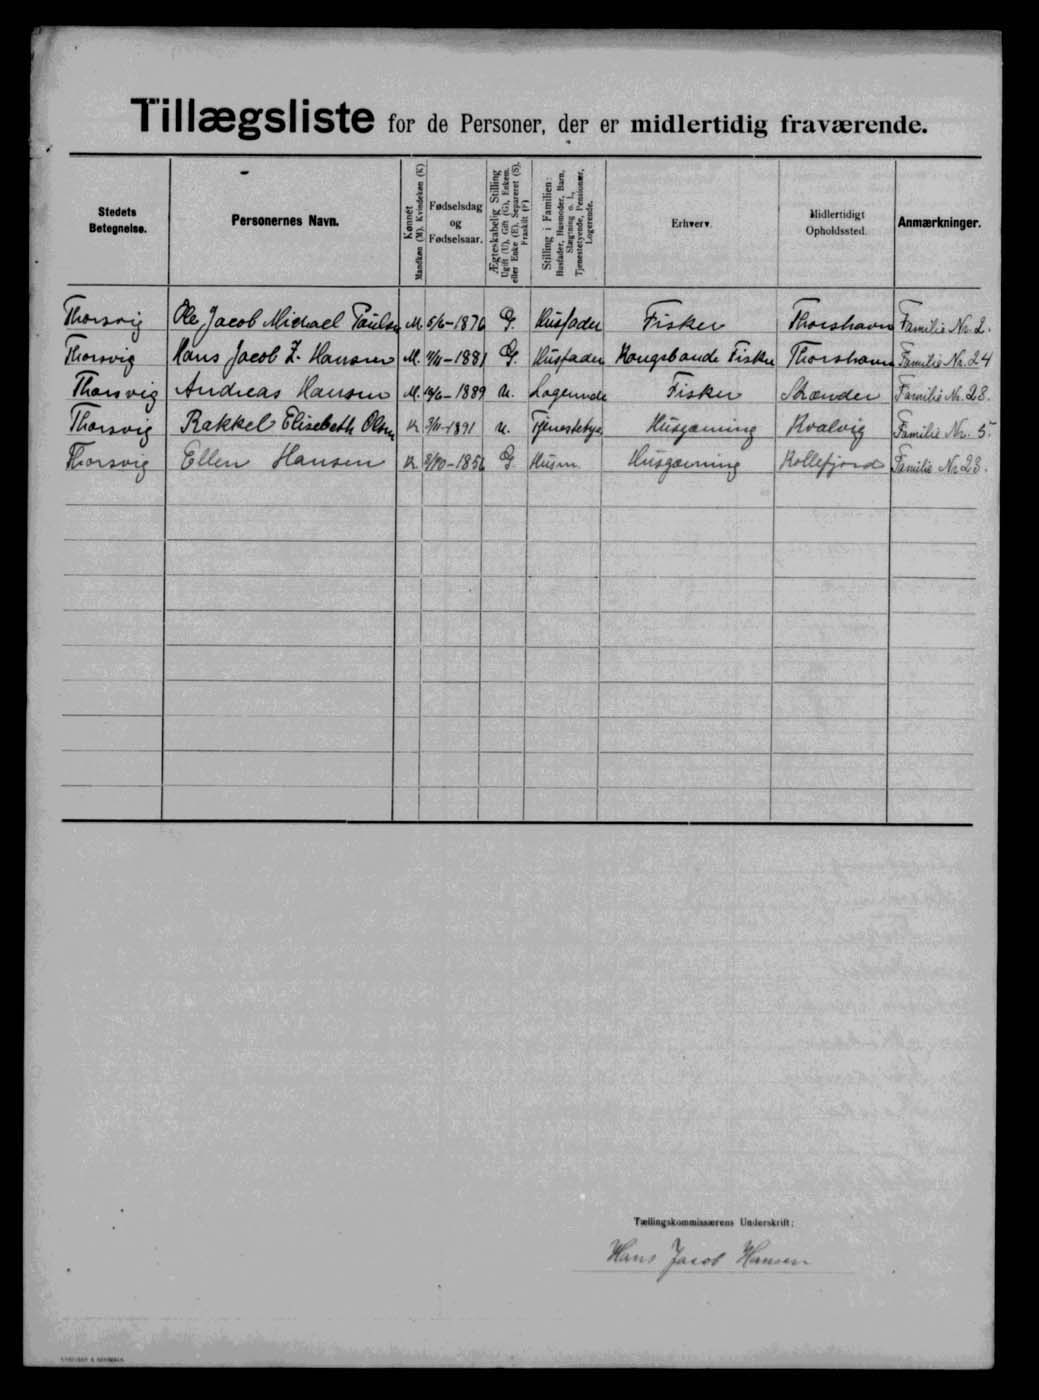 Tillægsliste for de Personer, der er midlertidig fraværende.
Stedets Betegnelse.
Personernes Navn.
Kønnet Mandkøn (M). Kvindekøn (K)
Fødselsdag og Fødselsaar.
Ægteskabelig Stilling Ugift (U), Gift (G), Enkem. eller Enke (E), Separeret (S), Fraskilt (F)
Stilling i Familien: Husfader, Husmoder, Barn, Slægtning o. l., Tjenestetyende, Pensionær, Logerende.
Erhverv.
Midlertidigt Opholdssted.
Anmærkninger.
Thorsvig Ole Jacob Michael Poulsen M. 5/6-1870 G. Husfader Fisker Thorshavn Familie No. 2.
Thorsvig Hans Jacob Z. Hansen M. 1881 G. Husfader Kongebonde Fisker Thorshavn Familie Nr. 24
Thorsvig Andreas Hansen M. 1889 U. Logerende Fisker Skænder Familie Nr. 28.
Thorsvig Rakkel Elisebeth Olsen K 1891 U. Tjenestetye Husgærning Kvalvig Familie Nr. 5.
Thorsvig Ellen Hansen K. 1856 G. Husm. Husgærning Kollefjord Familie Nr 23.
Tællingskommissærens Underskrift:
Hans Jacob Hansen